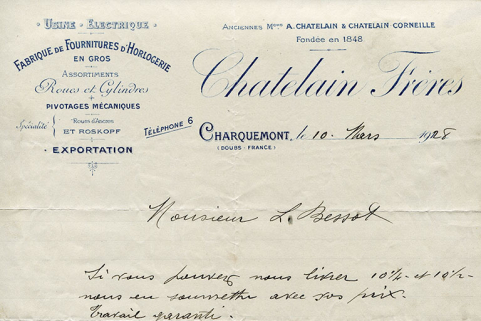 Usine - Électrique
Fabrique de Fournitures d'Horlogerie
EN GROS
ASSORTIMENTS
Roues et Cylindres
PIVOTAGES MÉCANIQUES
Spécialité
Roues d'Ancre
ET ROSKOPF
EXPORTATION
TÉLÉPHONE 6
Anciennes M A. CHATELAIN & CHATELAIN-CORNEILLE
Fondée en 1848
Chatelain Frères
CHARQUEMONT, le 10 Mars 1928
(DOUBS-FRANCE)
Monsieur L. Bessot
Si vous pouvez nous livrer 10½ et 10½
nous en soumettre avec vos prix.
Travail garanti.